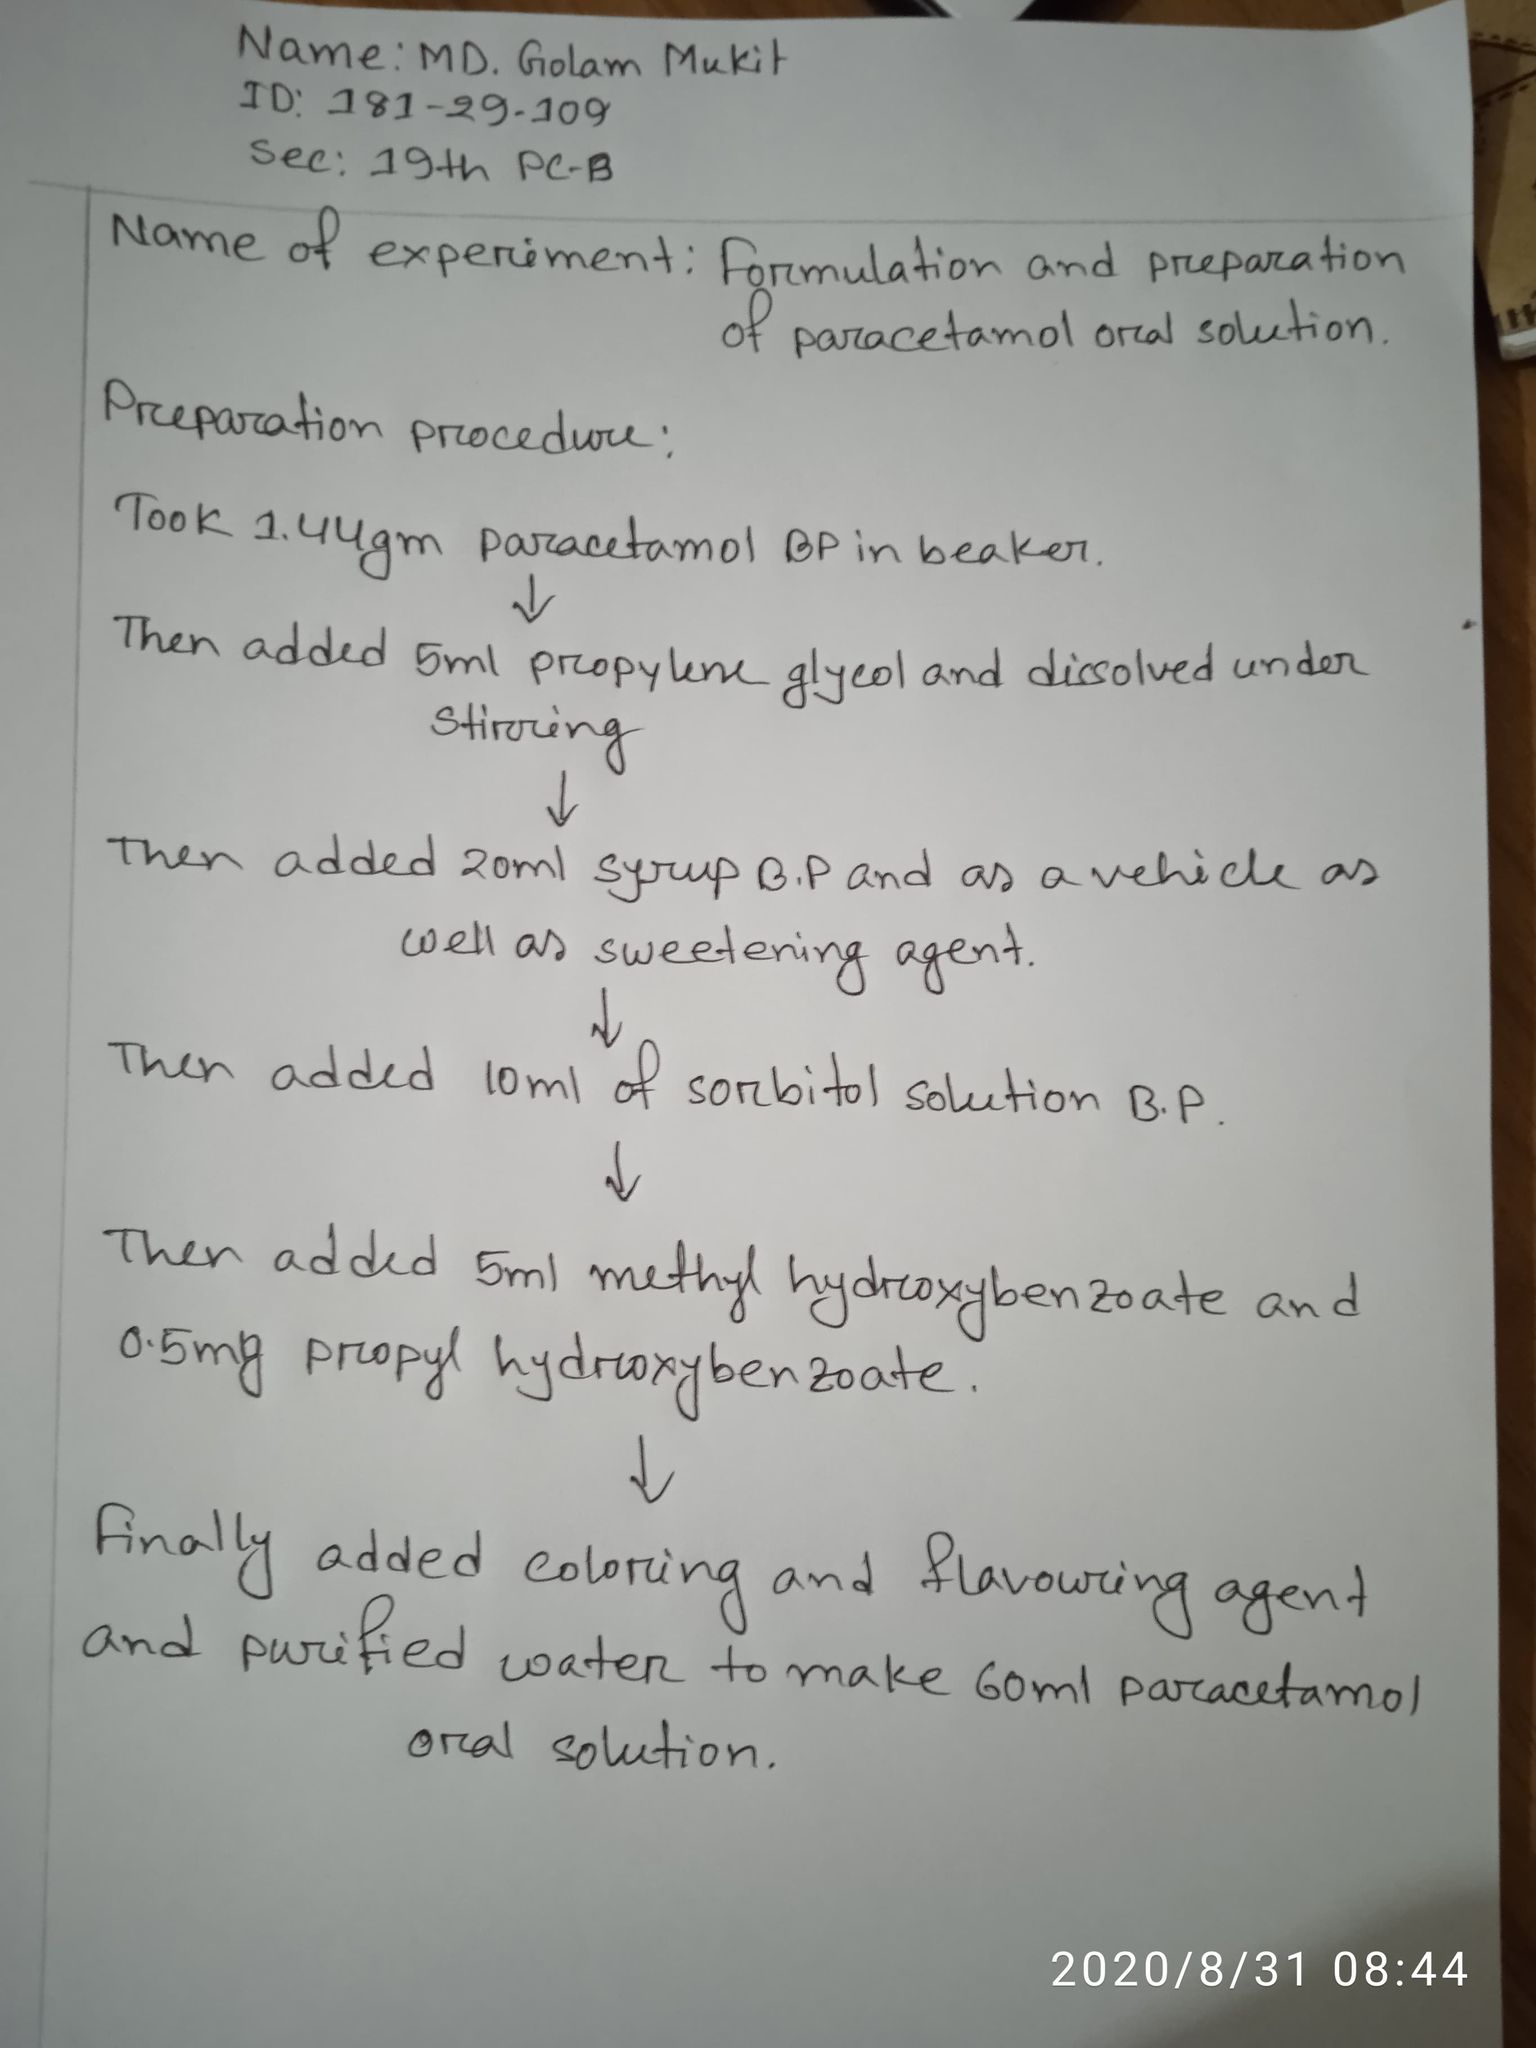 Name: MD. Golam Mukit
ID: 181-29-109
Sec: 19th PC-B
Name of experiment: Formulation and preparation
of paracetamol oral solution.
Preparation procedure:
Took 1.44gm paracetamol BP in beaker.
↓
Then added 5ml propylene glycol and dissolved under
stirring
↓
Then added 20ml syrup B.P and as a vehicle as
well as sweetening agent.
↓
Then added 10ml of sorbitol solution B.P.
↓
Then added 5ml methyl hydroxybenzoate and
0.5mg propyl hydroxybenzoate.
↓
Finally added coloring and flavouring agent
and purified water to make 60ml paracetamol
oral solution.
2020/8/31 08:44